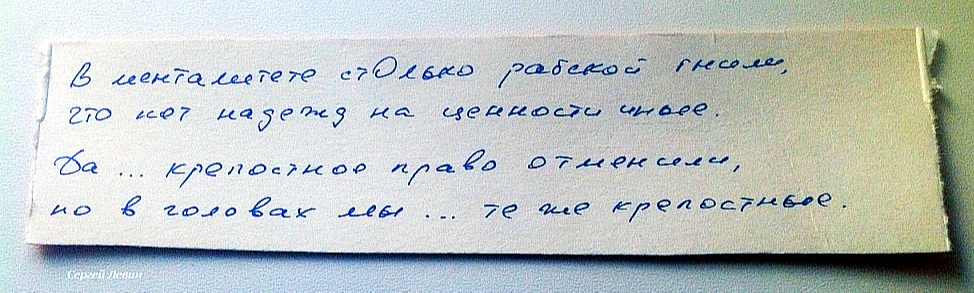 В менталитете стОлько рабской гнили,
что нет надежд на ценности иные.
Да ... крепостное право отменили,
но в головах мы ... те же крепостные.
Сергей Левин